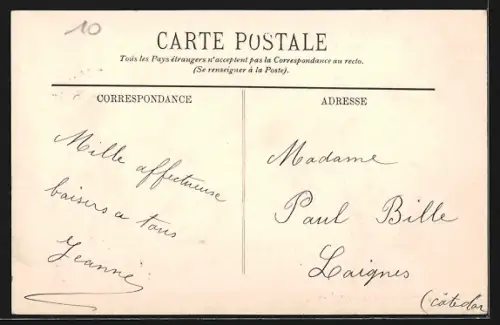 10
CARTE POSTALE
Tous les Pays étrangers n'acceptent pas la Correspondance au recto.
(Se renseigner à la Poste).
CORRESPONDANCE
Mille affectueuse
baisers a tous
Jeanne
ADRESSE
Madame
Paul Bille
Laignes
(côte dor